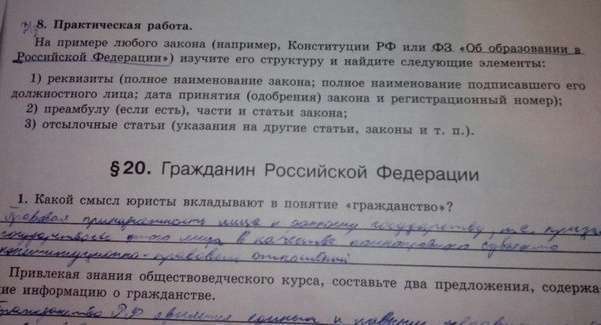 8. Практическая работа.
На примере любого закона (например, Конституции РФ или ФЗ «Об образовании в
Российской Федерации») изучите его структуру и найдите следующие элементы:
1) реквизиты (полное наименование закона; полное наименование подписавшего его
должностного лица; дата принятия (одобрения) закона и регистрационный номер);
2) преамбулу (если есть), части и статьи закона;
3) отсылочные статьи (указания на другие статьи, законы и т. п.).
§ 20. Гражданин Российской Федерации
1. Какой смысл юристы вкладывают в понятие «гражданство»?
Правовая принадлежность лица к данному государству, т.е.
государством этого лица в качестве полноправного субъекта
конституционно-правовых отношений
Привлекая знания обществоведческого курса, составьте два предложения, содержа-
ие информацию о гражданстве.
Гражданство РФ является единым и равным